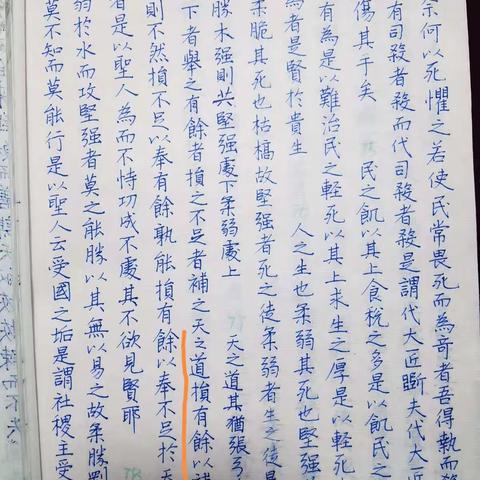 奈何以死懼之若使民常畏死而為奇者吾得執而殺
有司殺者殺而代司殺者殺是謂代大匠斵夫代大匠
傷其手矣　民之飢以其上食稅之多是以飢民之
有為是以難治民之輕死以其上求生之厚是以輕死
為者是賢於貴生　人之生也柔弱其死也堅強
柔脆其死也枯槁故堅强者死之徒柔弱者生之徒是
勝木强則共堅强處下柔弱處上　77 天之道其猶張弓
下者舉之有餘者損之不足者補之天之道損有餘以補
則不然損不足以奉有餘孰能損有餘以奉不足於天
者是以聖人為而不恃功成不處其不欲見賢耶　78
弱於水而攻堅强者莫之能勝以其無以易之故柔勝剛
莫不知而莫能行是以聖人云受國之垢是謂社稷主受